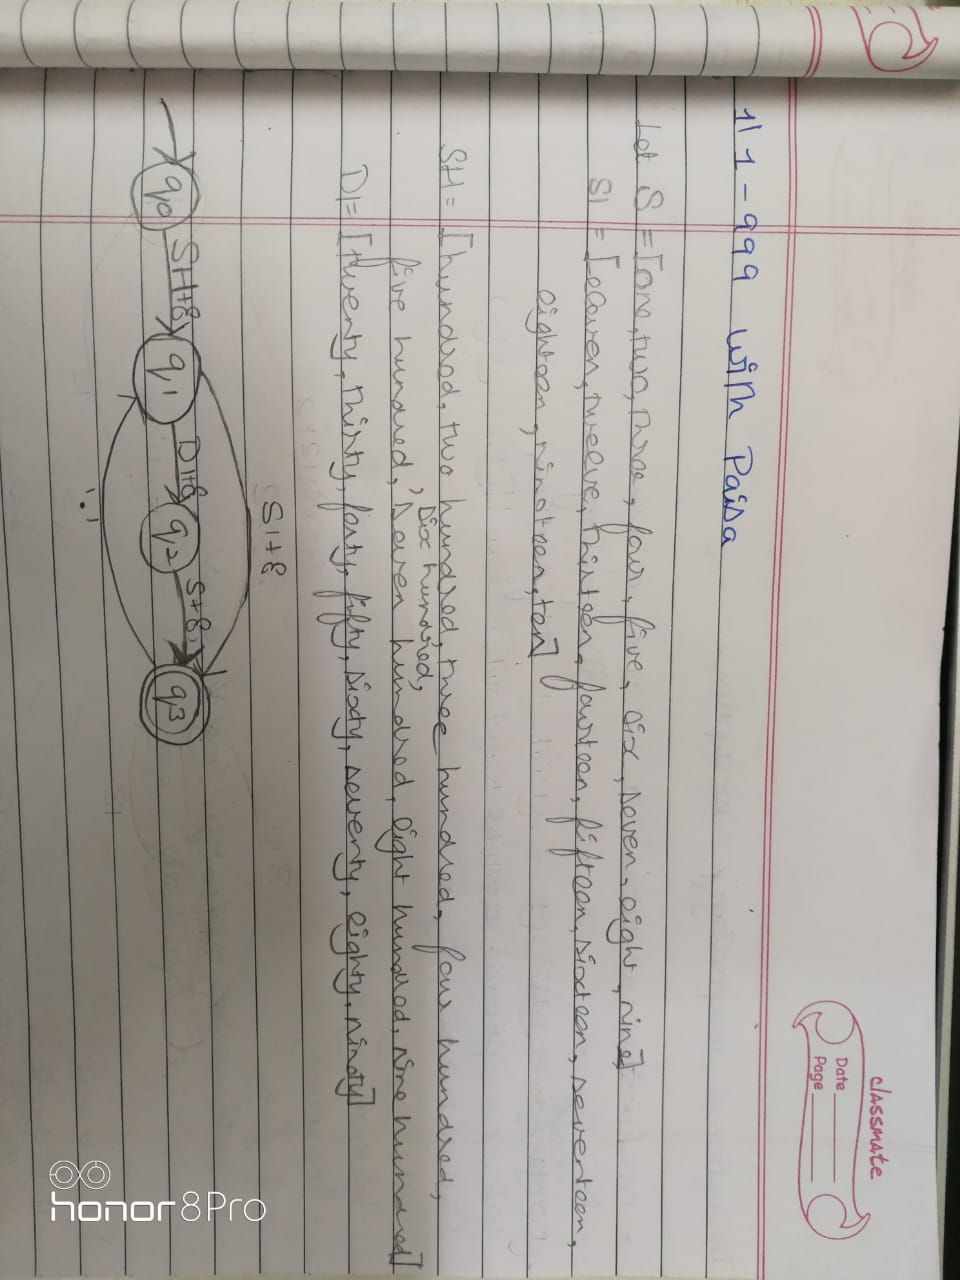 classmate
Date
Page
1/ 1-999 with Paisa
Let S = [one, two, three, four, five, six, seven, eight, nine]
S1 = [eleven, twelve, thirteen, fourteen, fifteen, sixteen, seventeen,
eighteen, nineteen, ten]
SH = [hundred, two hundred, three hundred, four hundred,
six hundred,
five hundred, seven hundred, eight hundred, nine hundred]
D1 = [twenty, thirty, forty, fifty, sixty, seventy, eighty, ninety]
S1+ε
q0 SH+ε q1 D1+ε q2 S+ε q3
'.'
honor 8Pro